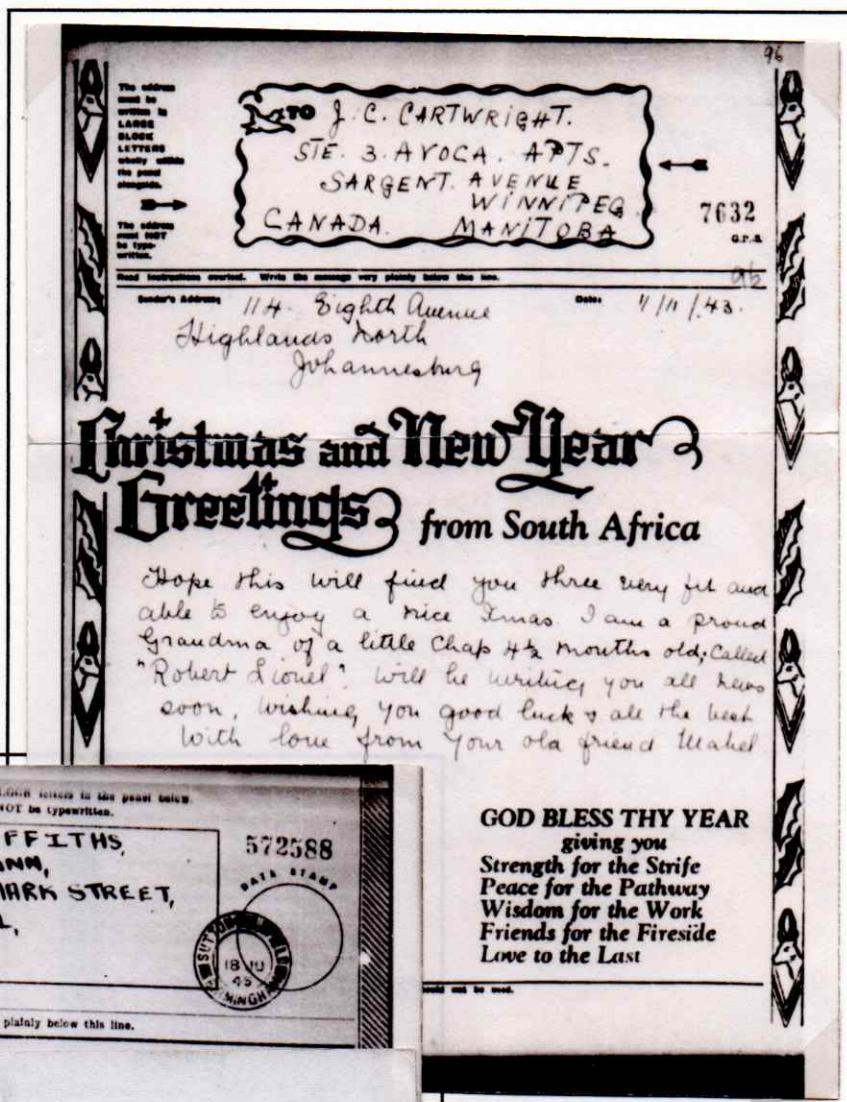 96
The address
must be
written in
LARGE
BLOCK
LETTERS
wholly within
the panel
alongside.
The address
must NOT
be type-
written.
TO J. C. CARTWRIGHT.
STE. 3. AVOCA. APTS.
SARGENT. AVENUE
WINNIPEG
CANADA. MANITOBA
7632
G.P.S.
Read instructions overleaf. Write the message very plainly below this line.
96
Sender's Address: 114. Eighth Avenue
Date: 11/11/43.
Highlands North
Johannesburg
Christmas and New Year
Greetings from South Africa
Hope this will find you three very fit and
able to enjoy a nice Xmas. I am a proud
Grandma of a little Chap 4½ months old; Called
"Robert Lionel". Will be writing you all news
soon, wishing you good luck & all the best
With love from your old friend Mabel.
GOD BLESS THY YEAR
giving you
Strength for the Strife
Peace for the Pathway
Wisdom for the Work
Friends for the Fireside
Love to the Last
should not be used.
letters in the panel below.
NOT be typewritten.
FFITHS,
ANN,
MARK STREET,
L,
572588
DATE STAMP
SUTTON
18 JU
45
plainly below this line.